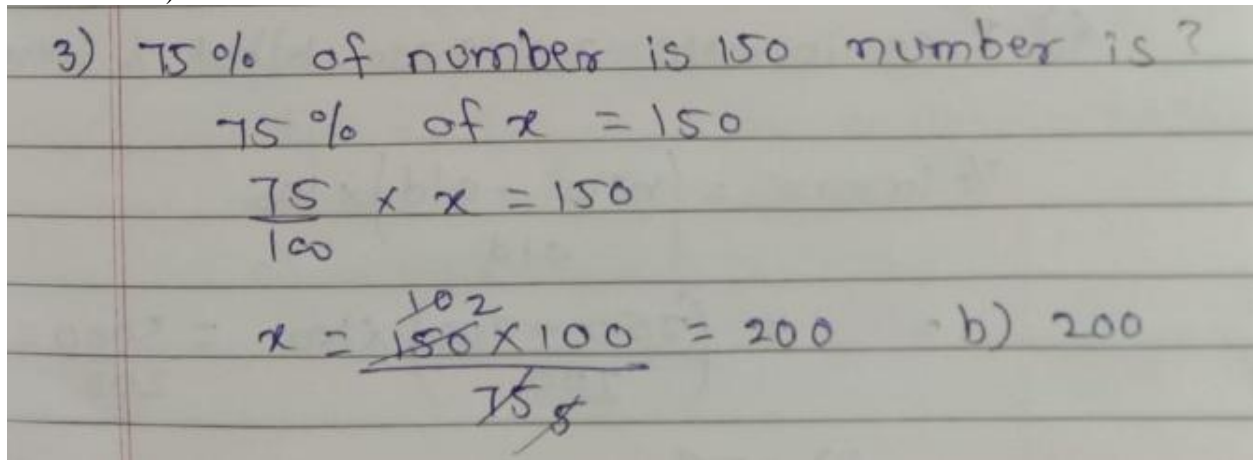 3) 75% of number is 150 number is?
75% of x = 150
75/100 × x = 150
x = 150 × 100 / 75 = 200 b) 200
10 2
5